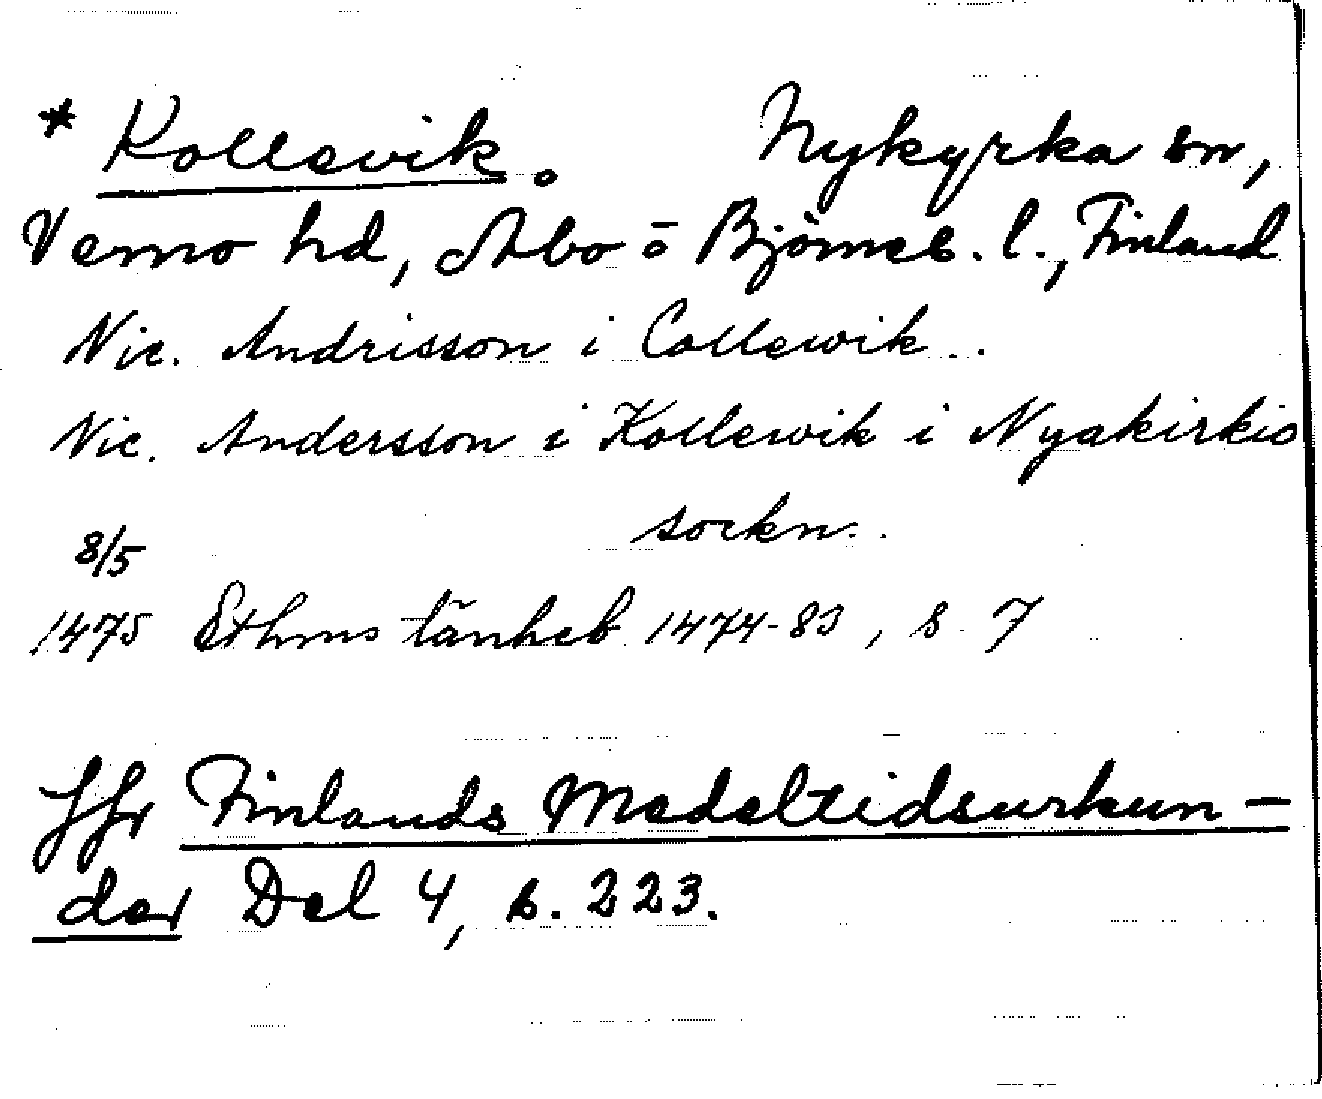 * Kollevik. Nykyrka sn,
Vemo hd, Åbo o Björneb. l., Finland
Nic. Andrisson i Collewik..
Nic. Andersson i Kollewik i Nyakirkio
sockn..
8/5
1475 Ethms tänkeb 1474-83, s. 7
Jfr Finlands Medeltidsurkun-
der Del 4, s. 223.